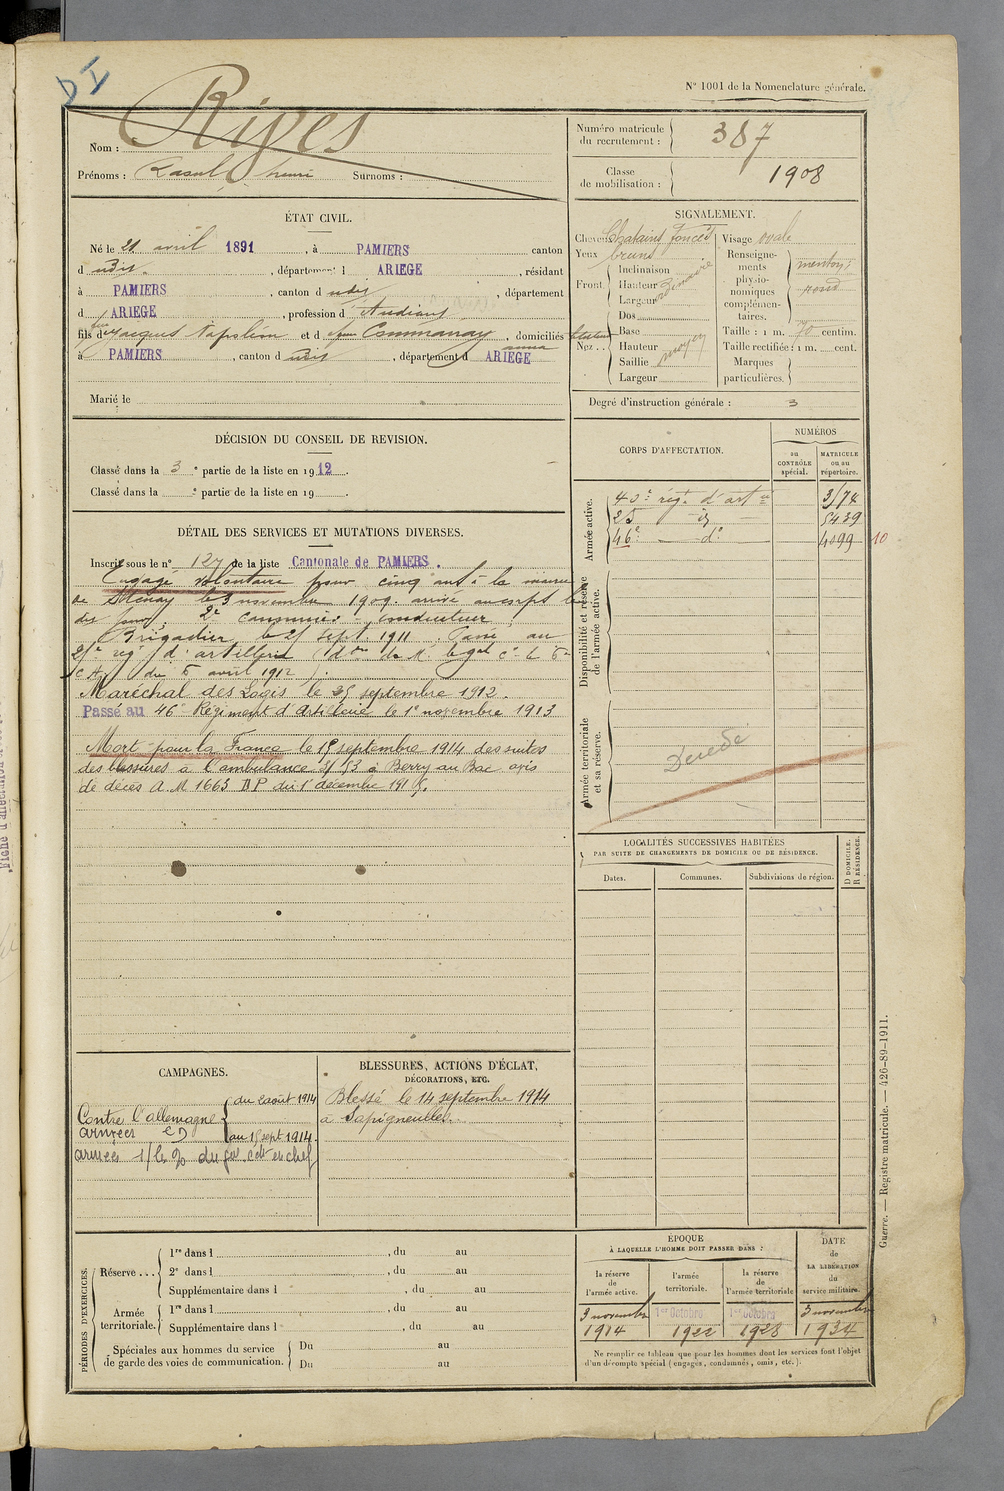 D I
N° 1001 de la Nomenclature générale.
Nom : Rives
Prénoms : Raoul Henri Surnoms :
Numéro matricule du recrutement : 387
Classe de mobilisation : 1908
ÉTAT CIVIL.
Né le 21 avril 1891, à PAMIERS canton
d udit, département d ARIEGE, résidant
à PAMIERS, canton d udit, département
d ARIEGE, profession d Etudiant
fils de feu Jacques Napoléon et d Commanay anna, domiciliés
à PAMIERS, canton d udit, département d ARIEGE
Marié le
SIGNALEMENT.
Cheveux Chatains foncés
Yeux bruns
Front Inclinaison
Hauteur ordinaire
Largeur
Nez Dos
Base
Hauteur moyen
Saillie
Largeur
Visage ovale
Renseignements physionomiques complémentaires. menton rond
Taille : 1 m. 70 centim.
Taille rectifiée : 1 m. cent.
Marques particulières.
Degré d'instruction générale : 3
DÉCISION DU CONSEIL DE REVISION.
Classé dans la 3e partie de la liste en 1912.
Classé dans la e partie de la liste en 19
DÉTAIL DES SERVICES ET MUTATIONS DIVERSES.
Inscrit sous le n° 127 de la liste Cantonale de PAMIERS.
Engagé volontaire pour cinq ans à la mairie
de Stenay le 3 novembre 1909. arrivé au corps le
dit jour, 2e canonnier conducteur
Brigadier le 25 sept. 1911. Passé au
25e reg d'artillerie
du 5 avril 1912
Maréchal des Logis le 25 septembre 1912.
Passé au 46e Régiment d'Artillerie le 1e novembre 1913
Mort pour la France le 15 septembre 1914 des suites
des blessures à l'ambulance 3/53 à Berry au Bac avis
de décès A. M 1663 BP du 1e décembre 191
CORPS D'AFFECTATION.
NUMÉROS
au CONTRÔLE spécial.
MATRICULE ou au répertoire.
Armée active.
40e rég. d'art ie 3174
25 - id - 5439
46e - d° 4099 10
Disponibilité et réserve de l'armée active.
Armée territoriale et sa réserve.
Décédé
LOCALITÉS SUCCESSIVES HABITÉES
PAR SUITE DE CHANGEMENTS DE DOMICILE OU DE RÉSIDENCE.
Dates.
Communes.
Subdivisions de région.
D DOMICILE.
R RÉSIDENCE.
CAMPAGNES.
Contre l'allemagne du 2 août 1914
au 15 sept 1914
BLESSURES, ACTIONS D'ÉCLAT,
DÉCORATIONS, ETC.
Blessé le 14 septembre 1914
à Sapigneulles.
PÉRIODES D'EXERCICES.
Réserve... 1re dans l , du au
2e dans l , du au
Supplémentaire dans l , du au
Armée territoriale. 1re dans l , du au
Supplémentaire dans l , du au
Spéciales aux hommes du service de garde des voies de communication. Du au
Du au
ÉPOQUE
À LAQUELLE L'HOMME DOIT PASSER DANS :
la réserve de l'armée active.
l'armée territoriale.
la réserve de l'armée territoriale
DATE de LA LIBÉRATION du service militaire.
3 novembre 1914
1er Octobre 1922
1er Octobre 1928
3 novembre 1934
Ne remplir ce tableau que pour les hommes dont les services font l'objet
d'un décompte spécial (engagés, condamnés, omis, etc.).
Guerre. — Registre matricule. — 426-89-1911.